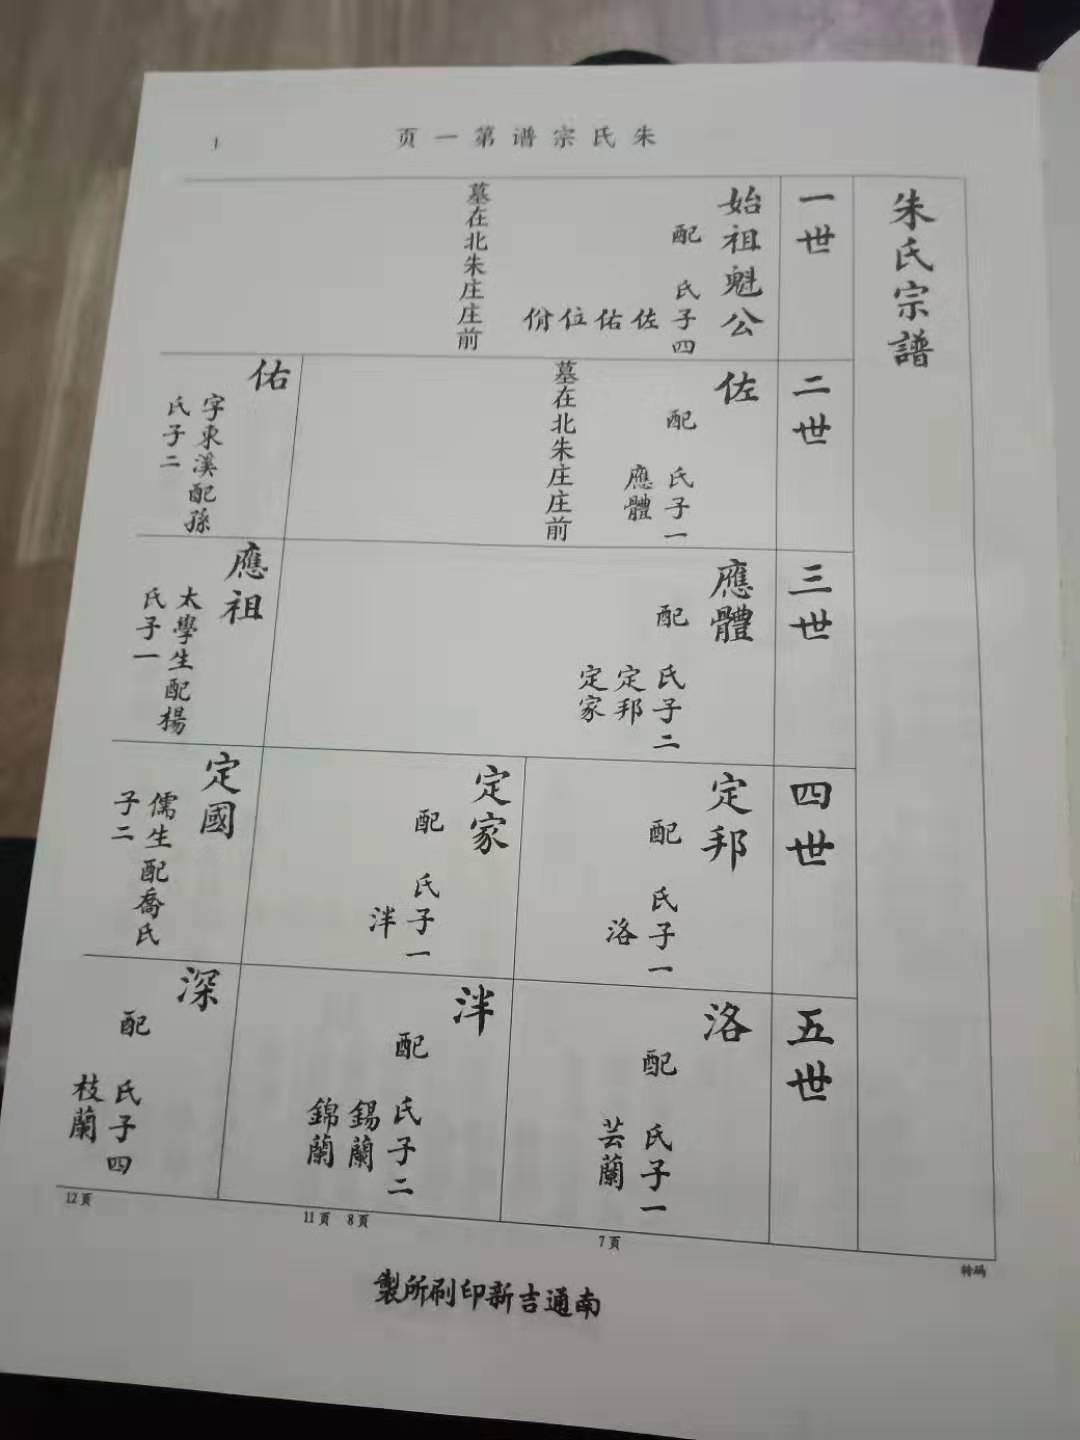 朱氏宗谱第一页
1
朱氏宗譜
一世
始祖魁公
配 氏子四
佐
佑
位
佾
墓在北朱庄庄前
二世
佐
配 氏子一
應體
墓在北朱庄庄前
佑
字東溪配孫
氏子二
三世
應體
配 氏子二
定邦
定家
應祖
太學生配楊
氏子一
四世
定邦
配 氏子一
洛
定家
配 氏子一
泮
定國
儒生配喬氏
子二
五世
洛
配 氏子一
芸蘭
泮
配 氏子二
錫蘭
錦蘭
深
配 氏子四
枝蘭
转码
7页
8页
11页
12页
南通吉新印刷所製